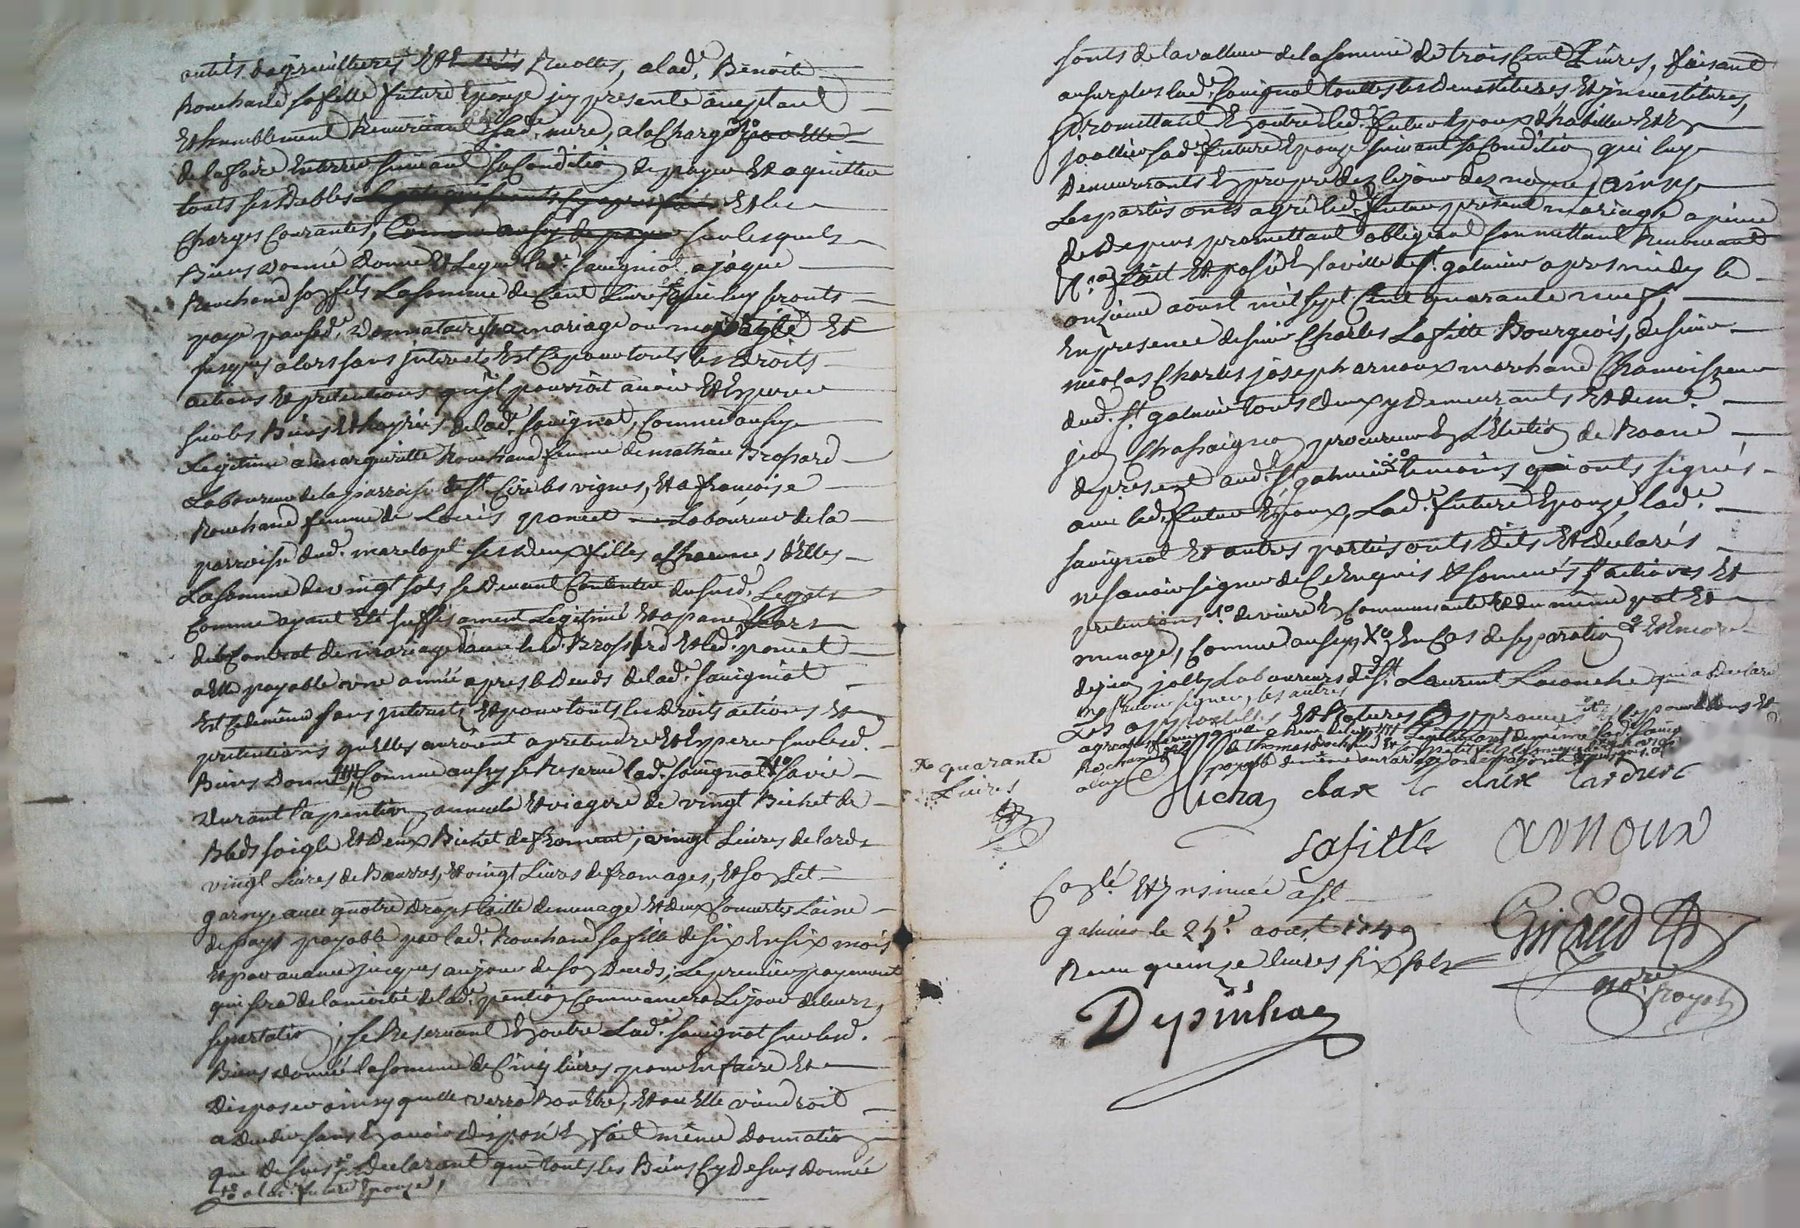 outils d'agricultures Et Recoltes, a lad.e Benoite
Rouchand sa fille future Epouse jcy presente acceptant
Et humblement Remerciant sad.e mere, a la Charge
de la faire Enterrer suivant sa Condition de payer Et aquitter
touts ses debtes Et les
Charges Courantes, sur lesquels
Biens donné donne Et Legue lad.e savignot a jaque
Rouchand son fils La somme de Cent Livres qui luy seronts
payé par sad.e donnataire par mariage ou majorité Et
jusques alors sans jnterests Est Ce pour touts les droits
actions Et pretentions qu'jl pourroit avoir Et Esperer
sur les Biens Et hoyries de lad.e savignot, Comme aussy
Legitime a marguerite Rouchand femme de mathieu Brossard
Laboureur de la parroisse de St. Cire les vignes, Et a francoise
Rouchand femme de Louis poncet Laboureur de la
parroisse dud. marclopt ses deux filles a Chacune d'Elles
La somme de vingt sols se devant Contenter du susd. Legats
Comme ayant Eté suffisament Legitimé Et apanés Lors
des Contrat de mariage avec led. Brossard Et led. poncet
a Elle payable une année apres le deceds de lad.e savignot
Est Ce de même sans jnterests Et pour touts les droits actions Et
pretentions qu'elles auroient a pretendre Et Esperer sur lesd.
Biens Donné, Comme aussy se Reserve lad.e savignot sa vie
durant la pention annuele Et viagere de vingt Bichet de
Bleds soigle Et deux Bichet de froment, vingt Livres de lards
vingt Livres de Beurres, Et vingt Livres de fromages, Et son Lit
garny avec quatre draps toille de menage Et deux Couvertes Laine
de pays payable par lad.e Rouchand sa fille de six En six mois
Et par avance jusques au jour de son deceds, Le premier payement
qui sera de la moitié de lad.e pention Commencera Le jour de leurs
separation, se Reservant En outre Lad.e savignot sur lesd.
Biens donné la somme de Cinq Livres pour En faire Et
disposer ainsy quelle verra Bon Etre, Et ou Elle viendroit
a deceder sans En avoir disposé En fait même donnation
que dessus Declarant que touts les Biens Cy dessus donnée
a lad.e future Epouze,
sonts de la valleur de la somme de trois Cent Livres, faisant
au surplus lad.e savignot touttes les demestitures Et jnvestitures,
promettant En outre led. futur Epoux d'habiller Et En
joaller sad.e future Epouze suivant sa Condition qui luy
demeurerants En propre dez le jour des nopces ainsy
Les parties onts agrée led. futur present mariage a peine
de despens promettant obligeant soumettant Renonceant
fait Et passé En la ville de St. galmier apres midy le
onzieme aoust mil sept Cent quarante neuf,
En presence de sieur Charles Lafitte Bourgeois, de sieur
nicolas Charles joseph arnoux marchand Chamoisseur
dud. St. galmier touts deux y demeurants Et de me.
jean Chassaigne procureur En L'Election de Roanne
de present aud. St. galmier temoins qui onts signés
avec led. futur Epoux, Lad.e future Epouze, lad.e
savignot Et autres parties onts dits Et declarés
ne savoir signer de Ce Enquis Et sommés actions Et
pretentions de vivre En Communauté Et du même pot Et
menage, Comme aussy En Cas de separation Et Encore
de jean jolly Laboureurs de St. Laurent Laconche qui a declaré
ne savoir signer, les autres
Les appostilles Et Ratures approuvés
X.o quarante
Livres
Michas
lafitte arnoux
Conlé. Et Ensinué a St.
galmier le 25e. aoust 1749
Receu quinze livres six sols
Depinhac
Giraud
nore. Royal